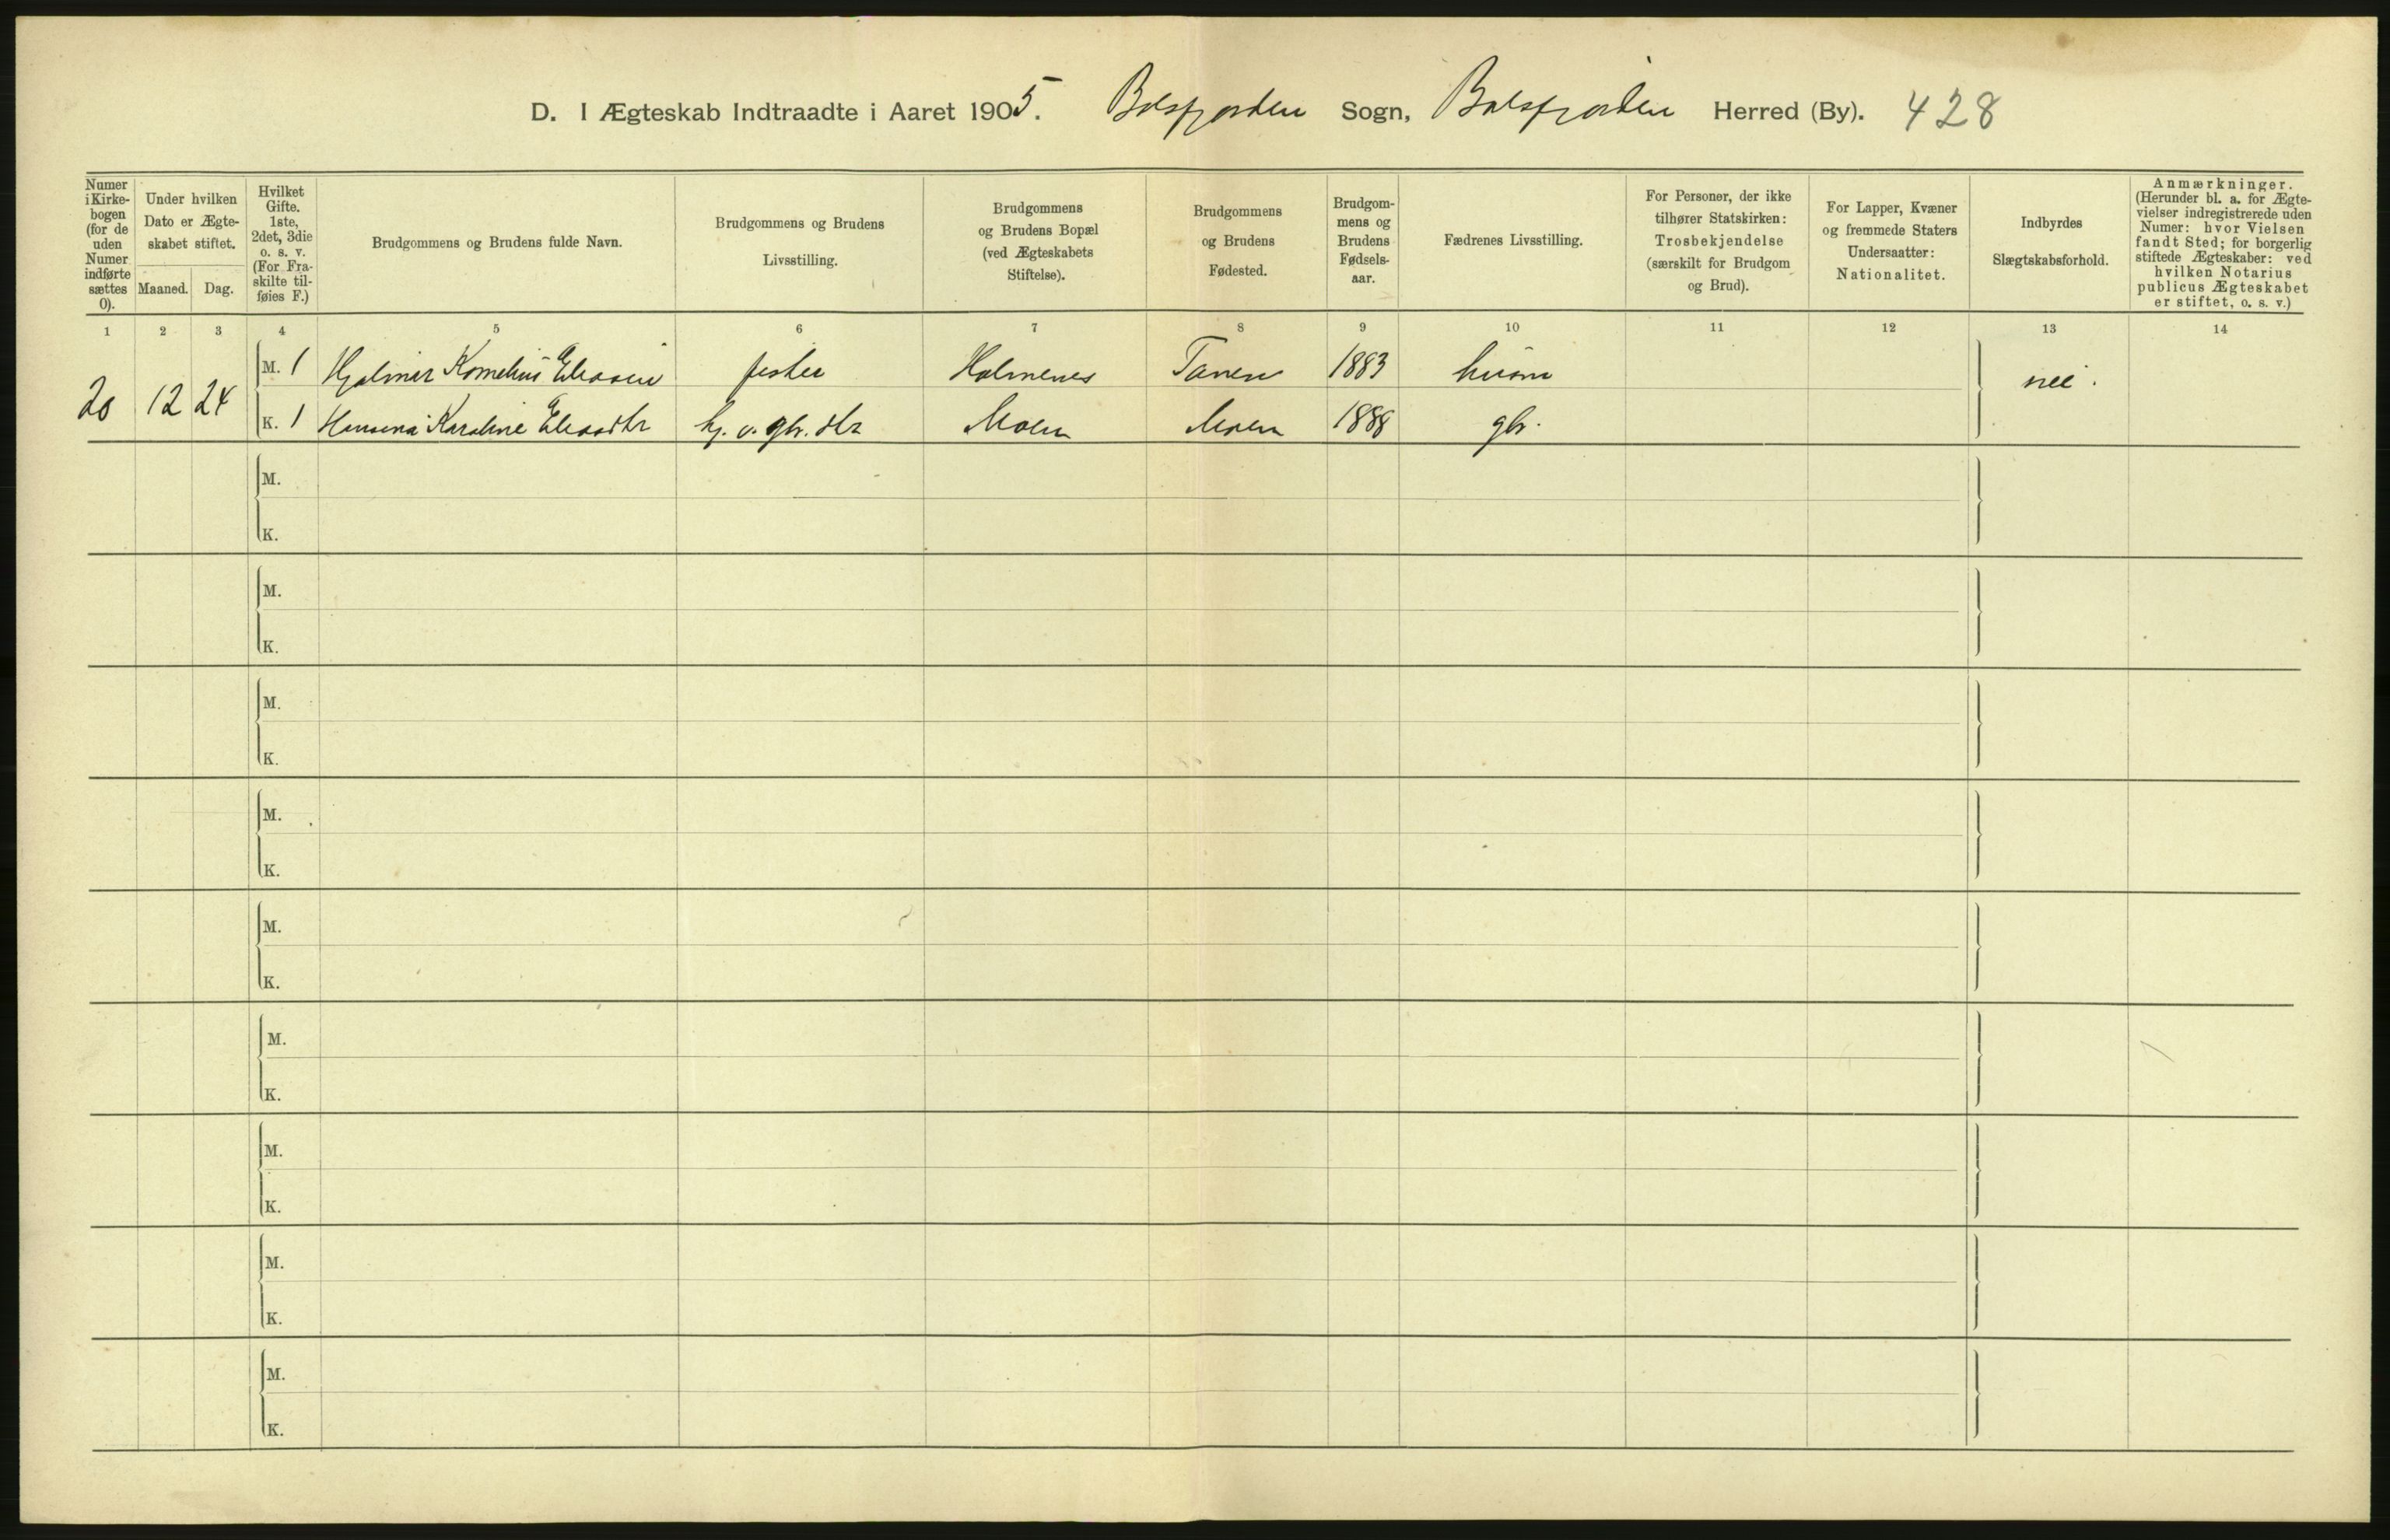 D. I Ægteskab Indtraadte i Aaret 1905. Balsfjorden Sogn, Balsfjorden Herred (By). 428
Numer i Kirke-bogen (for de uden Numer indførte sættes 0).
Under hvilken Dato er Ægte-skabet stiftet.
Maaned. Dag.
Hvilket Gifte. 1ste, 2det, 3die o. s. v. (For Fra-skilte til-føies F.)
Brudgommens og Brudens fulde Navn.
Brudgommens og Brudens Livsstilling.
Brudgommens og Brudens Bopæl (ved Ægteskabets Stiftelse).
Brudgommens og Brudens Fødested.
Brudgom-mens og Brudens Fødsels-aar.
Fædrenes Livsstilling.
For Personer, der ikke tilhører Statskirken: Trosbekjendelse (særskilt for Brudgom og Brud).
For Lapper, Kvæner og fremmede Staters Undersaatter: Nationalitet.
Indbyrdes Slægtskabsforhold.
Anmærkninger. (Herunder bl. a. for Ægte-vielser indregistrerede uden Numer: hvor Vielsen fandt Sted; for borgerlig stiftede Ægteskaber: ved hvilken Notarius publicus Ægteskabet er stiftet, o. s. v.)
1 2 3 4 5 6 7 8 9 10 11 12 13 14
20 12 24 M. 1 Hjalmar Kornelius Eliasen fisker Holmenes 1883 husm nei.
K. 1 Hansena Karoline Eliasdtr hj. v. gbr. dtr Moen Moen 1888 gbr.
M.
K.
M.
K.
M.
K.
M.
K.
M.
K.
M.
K.
M.
K.
M.
K.
M.
K.